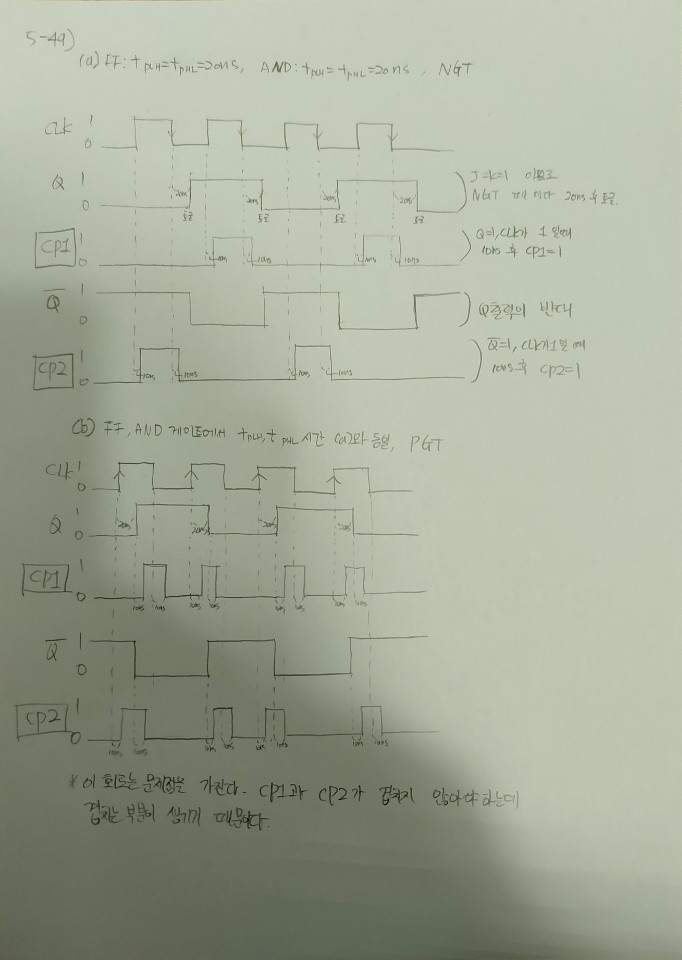 5-49)
(a) FF: tpLH=tpHL=20ns, AND: tpLH=tpHL=20ns, NGT
CLK 1
0
Q 1
0
20ns 20ns 20ns 20ns
토글 토글 토글 토글
J=K=1 이므로
NGT 때 마다 20ns 후 토글.
CP1 1
0
10ns 10ns 10ns 10ns
Q=1, CLK가 1 일때
10ns 후 CP1=1
Q̅ 1
0
Q출력의 반대
CP2 1
0
10ns 10ns 10ns 10ns
Q̅=1, CLK가 1일 때
10ns 후 CP2=1
(b) FF, AND 게이트에서 tpLH, tpHL 시간 (a)와 동일, PGT
CLK 1
0
Q 1
0
20ns 20ns 20ns 20ns
CP1 1
0
10ns 10ns 10ns 10ns 10ns 10ns 10ns 10ns
Q̅ 1
0
CP2 1
0
10ns 10ns 10ns 10ns 10ns 10ns 10ns 10ns
* 이 회로는 문제점을 가진다. CP1과 CP2가 겹치지 않아야 하는데
겹치는 부분이 생기기 때문이다.